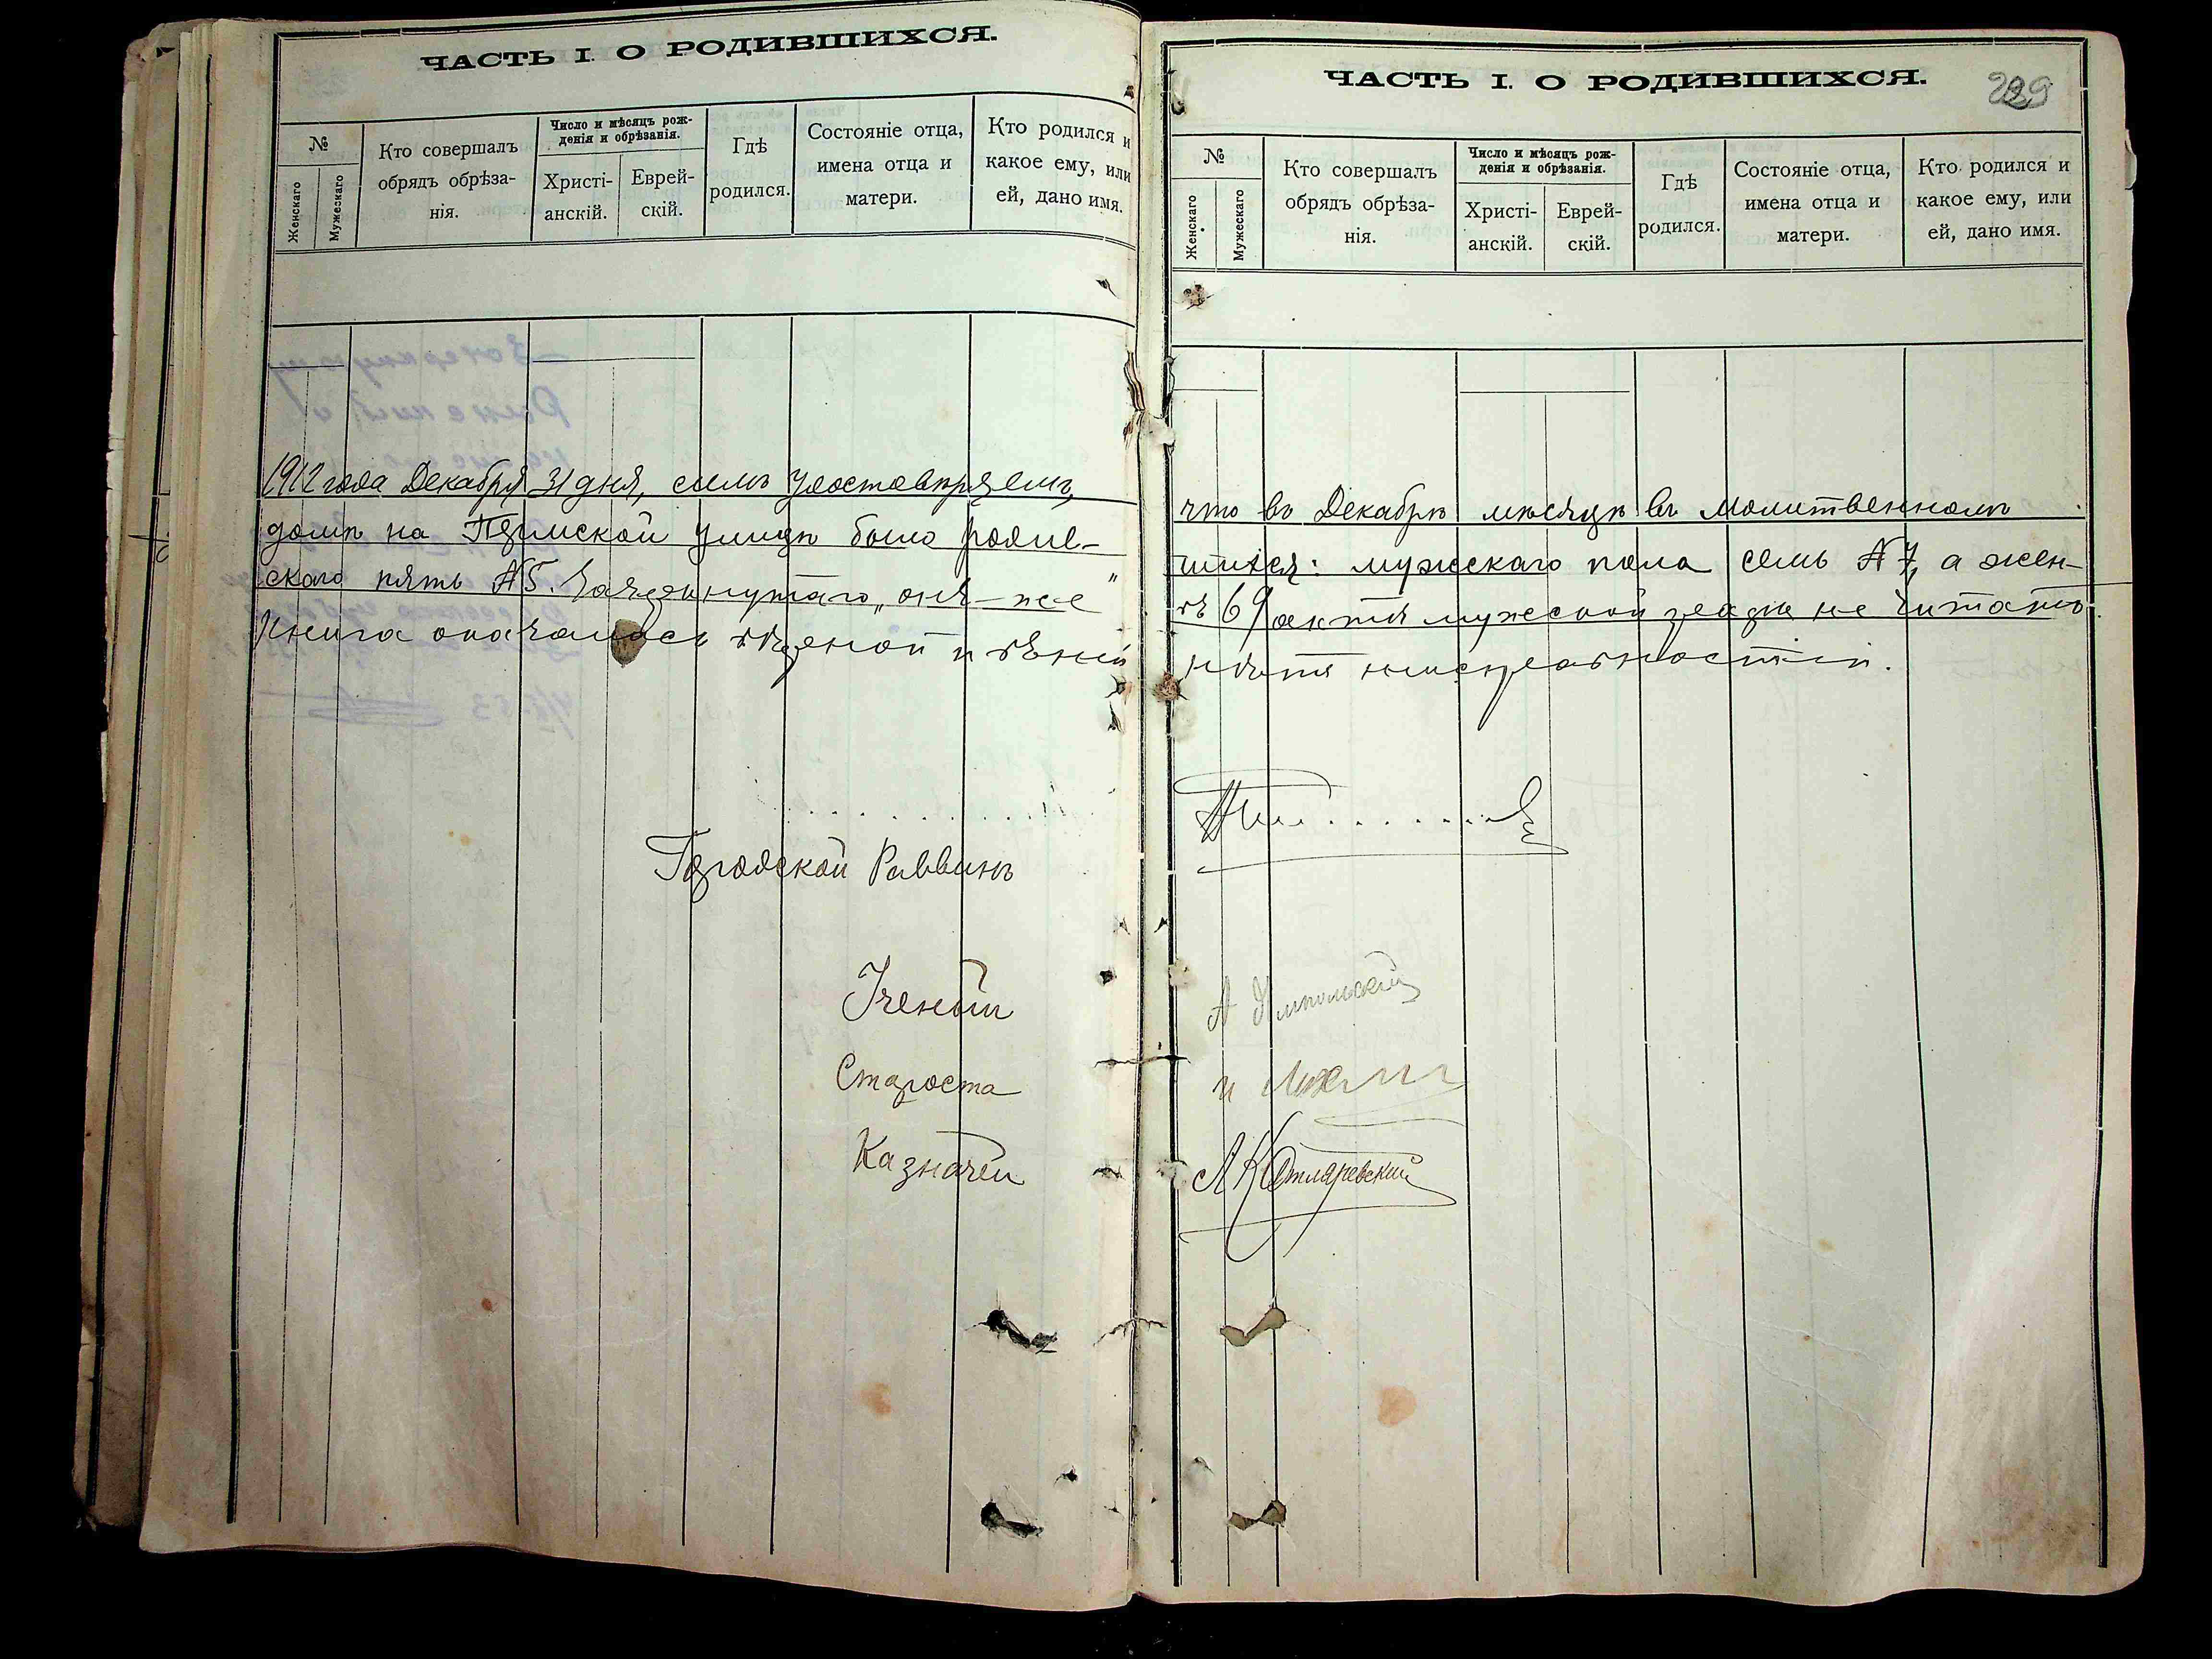 ЧАСТЬ I. О РОДИВШИХСЯ.
№
Женскаго
Мужескаго
Кто совершалъ
обрядъ обрѣза-
нія.
Число и мѣсяцъ рож-
денія и обрѣзанія.
Христі-
анскій.
Еврей-
скій.
Гдѣ
родился.
Состояніе отца,
имена отца и
матери.
Кто родился и
какое ему, или
ей, дано имя.
1912 года Декабря 31 дня, симъ удостовѣряемъ,
домѣ на улицѣ было родив-
скаго пять №5. Зачеркнутаго „онъ-же"
Книга оказалась
Городской Раввинъ
Ученый
Староста
Казначей
ЧАСТЬ I. О РОДИВШИХСЯ.
229
№
Женскаго
Мужескаго
Кто совершалъ
обрядъ обрѣза-
нія.
Число и мѣсяцъ рож-
денія и обрѣзанія.
Христі-
анскій.
Еврей-
скій.
Гдѣ
родился.
Состояніе отца,
имена отца и
матери.
Кто родился и
какое ему, или
ей, дано имя.
что въ Декабрѣ мѣсяцѣ въ молитвенномъ
шихся: мужескаго пола семь №7, а жен-
въ 69 актѣ не читать.
А Котляревский